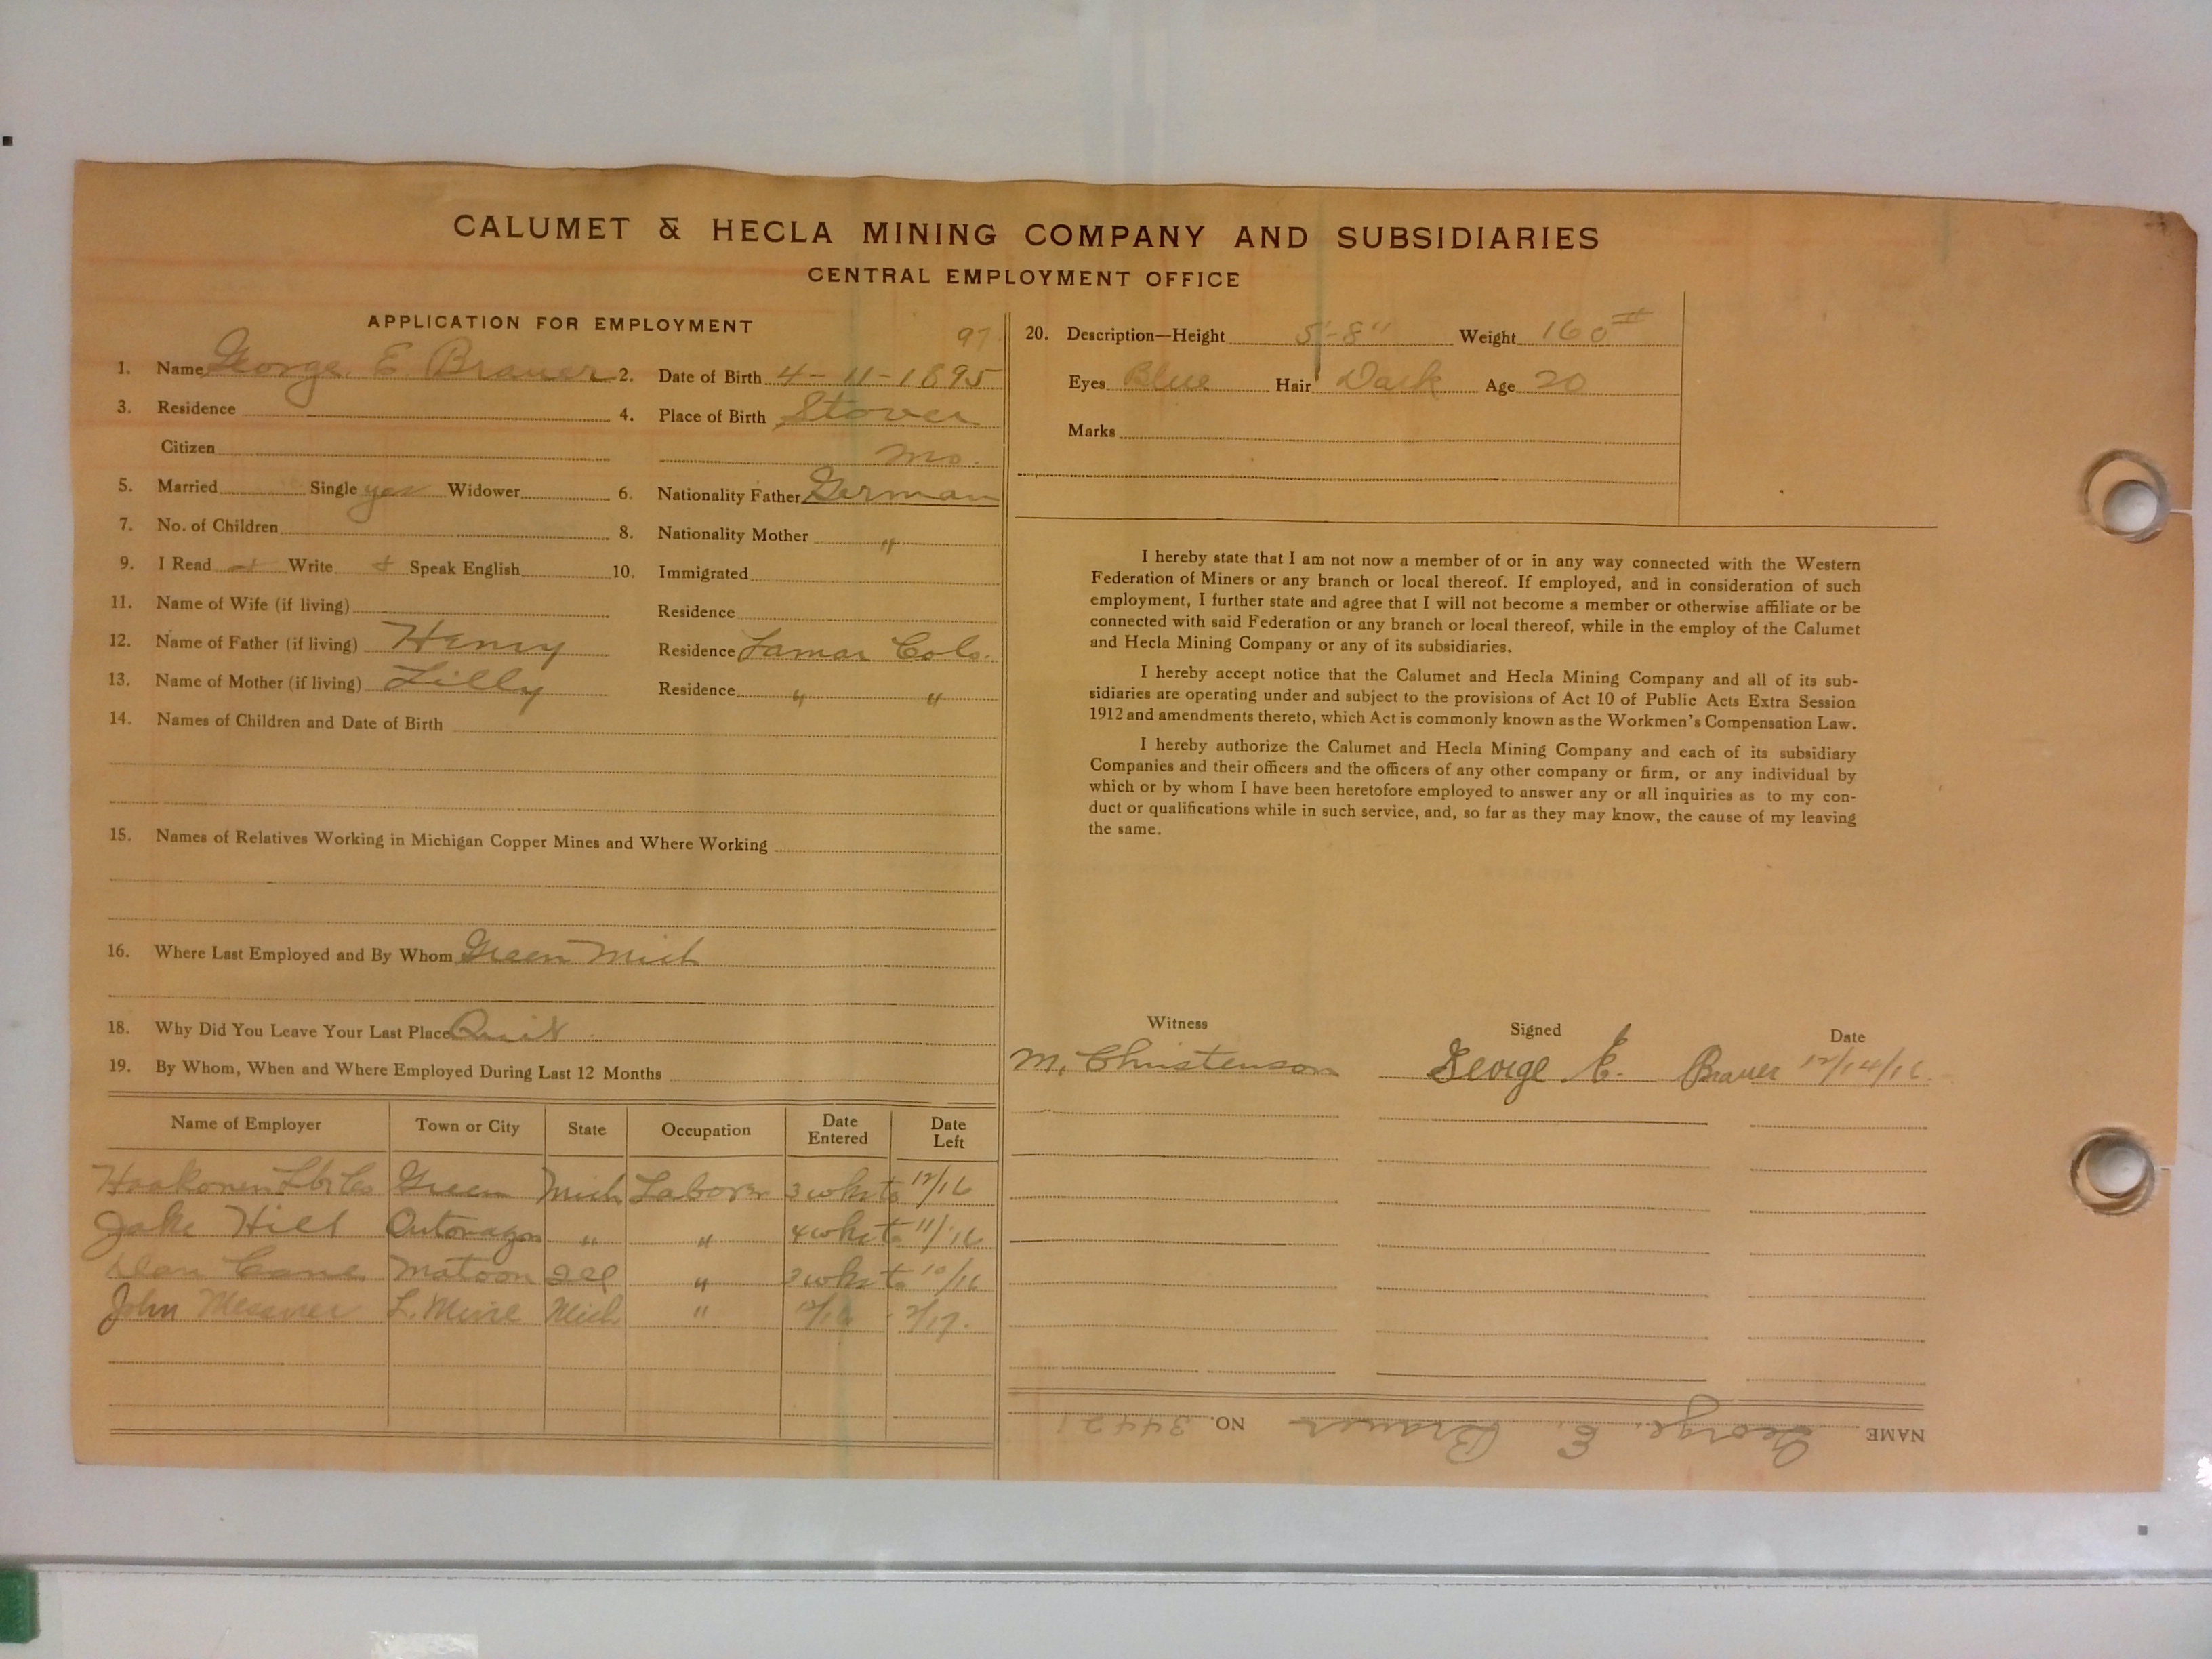 CALUMET & HECLA MINING COMPANY AND SUBSIDIARIES
CENTRAL EMPLOYMENT OFFICE
APPLICATION FOR EMPLOYMENT
97
1. Name George E Brauer 2. Date of Birth 4-11-1895
3. Residence 4. Place of Birth Stover
Citizen Mo.
5. Married Single yes Widower 6. Nationality Father German
7. No. of Children 8. Nationality Mother "
9. I Read Write Speak English 10. Immigrated
11. Name of Wife (if living) Residence
12. Name of Father (if living) Henry Residence Lamar Colo.
13. Name of Mother (if living) Lilly Residence " "
14. Names of Children and Date of Birth
15. Names of Relatives Working in Michigan Copper Mines and Where Working
16. Where Last Employed and By Whom Green Mich
18. Why Did You Leave Your Last Place Quit
19. By Whom, When and Where Employed During Last 12 Months
Name of Employer Town or City State Occupation Date Entered Date Left
Green Mich Laborer 3 wks to 12/16
Jake Hill Ontonagon " " 4 wks to 11/16
Matoon Ill " wks to 10/16
John L. Mich " 2/17.
20. Description—Height 5'-8" Weight 160#
Eyes Blue Hair Dark Age 20
Marks
I hereby state that I am not now a member of or in any way connected with the Western
Federation of Miners or any branch or local thereof. If employed, and in consideration of such
employment, I further state and agree that I will not become a member or otherwise affiliate or be
connected with said Federation or any branch or local thereof, while in the employ of the Calumet
and Hecla Mining Company or any of its subsidiaries.
I hereby accept notice that the Calumet and Hecla Mining Company and all of its sub-
sidiaries are operating under and subject to the provisions of Act 10 of Public Acts Extra Session
1912 and amendments thereto, which Act is commonly known as the Workmen's Compensation Law.
I hereby authorize the Calumet and Hecla Mining Company and each of its subsidiary
Companies and their officers and the officers of any other company or firm, or any individual by
which or by whom I have been heretofore employed to answer any or all inquiries as to my con-
duct or qualifications while in such service, and, so far as they may know, the cause of my leaving
the same.
Witness Signed Date
M. Christenson George E. Brauer 12/14/16.
NAME George. E. Brauer NO. 34421